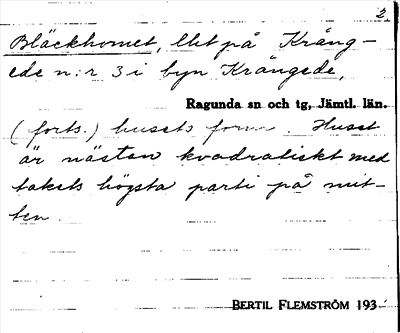 2
Bläckhornet, lht på Krång-
ede n:r 3 i byn Krångede,
Ragunda sn och tg, Jämtl. län.
(forts.) husets form. Huset
är nästan kvadratiskt med
takets högsta parti på mit-
ten.
BERTIL FLEMSTRÖM 193